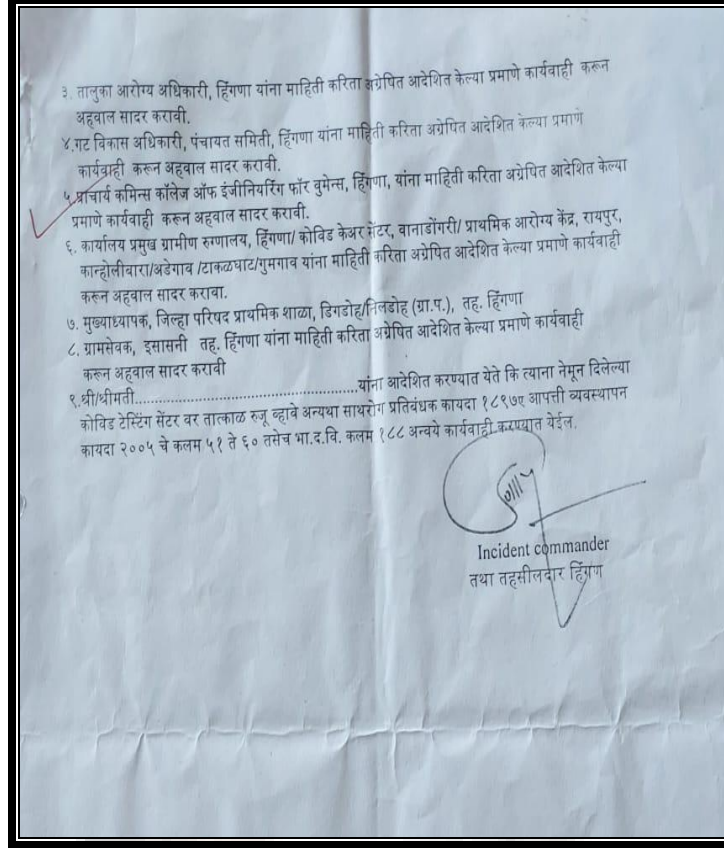 ३. तालुका आरोग्य अधिकारी, हिंगणा यांना माहिती करिता अग्रेषित आदेशित केल्या प्रमाणे कार्यवाही करून
अहवाल सादर करावी.
४.गट विकास अधिकारी, पंचायत समिती, हिंगणा यांना माहिती करिता अग्रेषित आदेशित केल्या प्रमाणे
कार्यवाही करून अहवाल सादर करावी.
५.प्राचार्य कमिन्स कॉलेज ऑफ इंजीनियरिंग फॉर वुमेन्स, हिंगणा, यांना माहिती करिता अग्रेषित आदेशित केल्या
प्रमाणे कार्यवाही करून अहवाल सादर करावी.
६. कार्यालय प्रमुख ग्रामीण रुग्णालय, हिंगणा/ कोविड केअर सेंटर, वानाडोंगरी/ प्राथमिक आरोग्य केंद्र, रायपुर,
कान्होलीवारा/अडेगाव /टाकळघाट/गुमगाव यांना माहिती करिता अग्रेषित आदेशित केल्या प्रमाणे कार्यवाही
करून अहवाल सादर करावा.
७. मुख्याध्यापक, जिल्हा परिषद प्राथमिक शाळा, डिगडोह/निलडोह (ग्रा.प.), तह. हिंगणा
८. ग्रामसेवक, इसासनी तह. हिंगणा यांना माहिती करिता अग्रेषित आदेशित केल्या प्रमाणे कार्यवाही
करून अहवाल सादर करावी
९.श्री/श्रीमती.................................................यांना आदेशित करण्यात येते कि त्याना नेमून दिलेल्या
कोविड टेस्टिंग सेंटर वर तात्काळ रुजू व्हावे अन्यथा साथरोग प्रतिबंधक कायदा १८९७ए आपत्ती व्यवस्थापन
कायदा २००५ चे कलम ५१ ते ६० तसेच भा.द.वि. कलम १८८ अन्वये कार्यवाही करण्यात येईल.
Incident commander
तथा तहसीलदार हिंगण